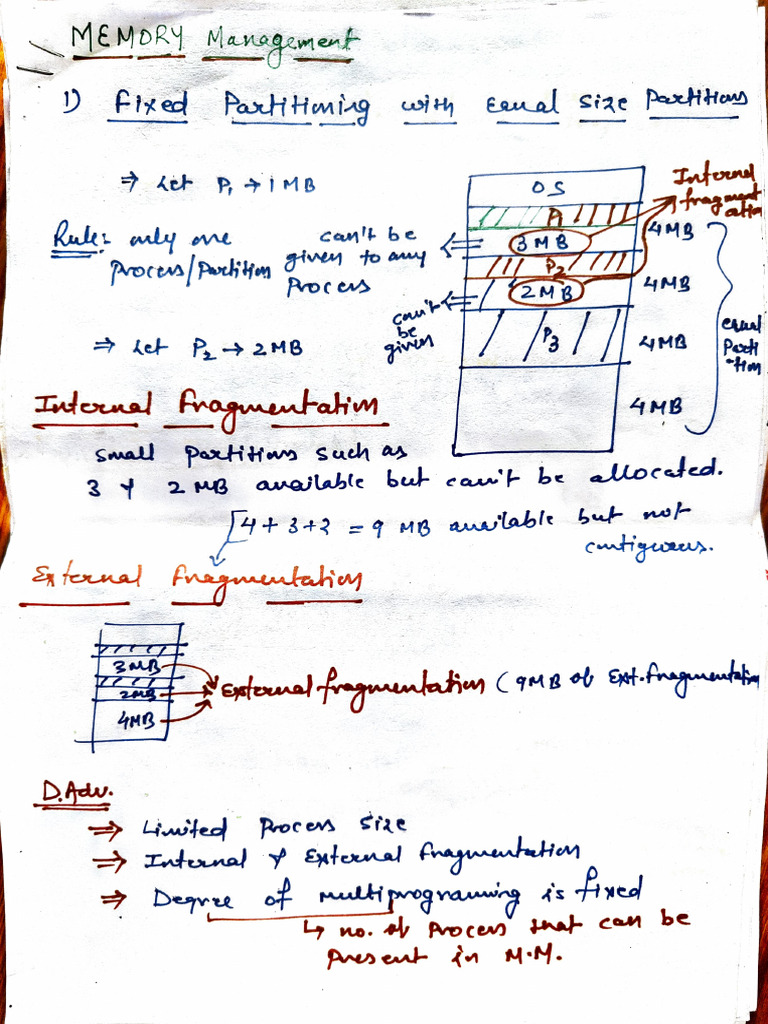 MEMORY Management
1) Fixed Partitioning with Equal Size Partitions
⇒ Let P1 → 1 MB
OS
Internal
fragment
ation
P1
4MB
Rule: only one
Process/Partition
can't be
given to any
Process
3 MB
P2
2 MB
4MB
can't
be
given
⇒ Let P2 → 2MB
P3
4MB
equal
Parti
-tion
4MB
Internal Fragmentation
small partitions such as
3 & 2 MB available but can't be allocated.
4 + 3 + 2 = 9 MB available but not
contiguous.
External Fragmentation
3MB
2MB
4MB
External fragmentation (9MB of Ext. fragmentation
D.Adv.
⇒ Limited Process Size
⇒ Internal & External Fragmentation
⇒ Degree of multiprograming is fixed
↳ no. of Process that can be
Present in M.M.